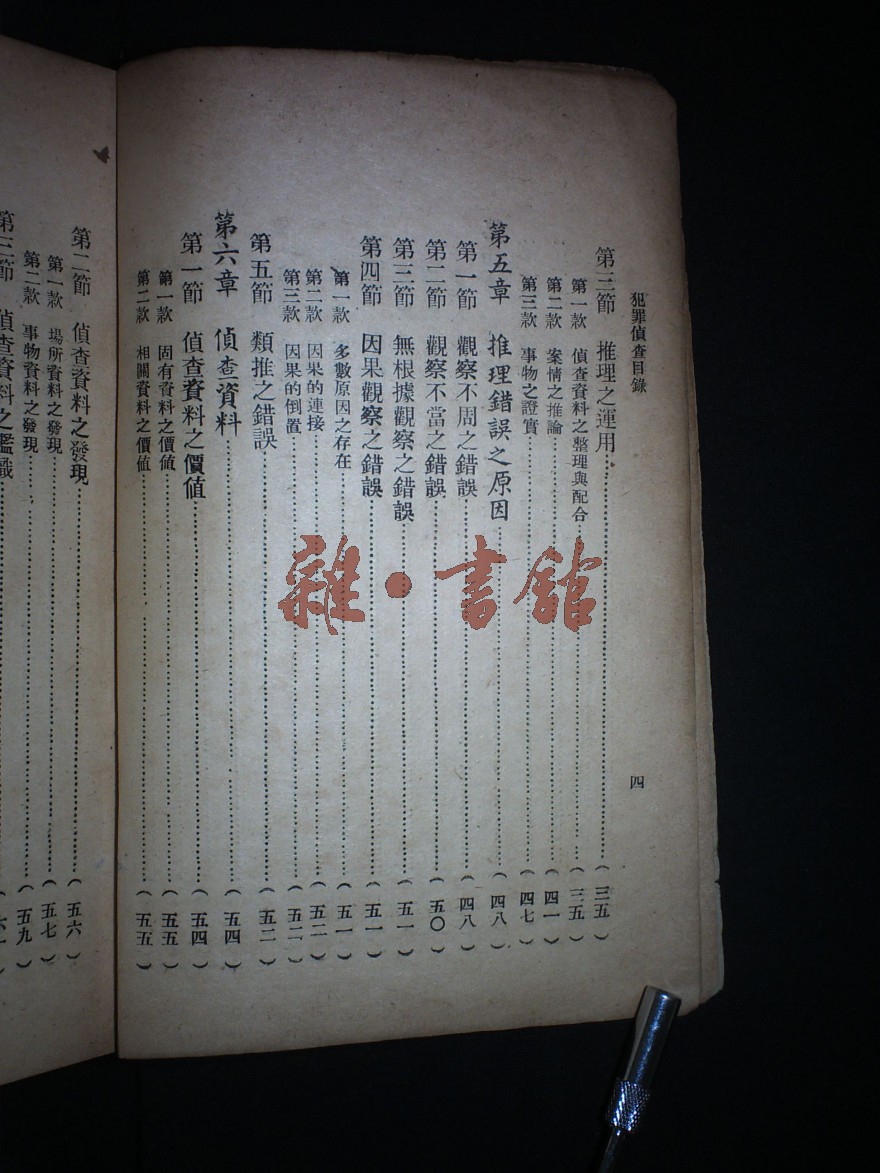 犯罪偵查目錄
四
第三節 推理之運用 (三五)
第一款 偵查資料之整理與配合 (三五)
第二款 案情之推論 (四一)
第三款 事物之證實 (四七)
第五章 推理錯誤之原因 (四八)
第一節 觀察不周之錯誤 (四八)
第二節 觀察不當之錯誤 (五〇)
第三節 無根據觀察之錯誤 (五一)
第四節 因果觀察之錯誤 (五一)
第一款 多數原因之存在 (五一)
第二款 因果的連接 (五二)
第三款 因果的倒置 (五二)
第五節 類推之錯誤 (五二)
第六章 偵查資料 (五四)
第一節 偵查資料之價值 (五四)
第一款 固有資料之價值 (五五)
第二款 相關資料之價值 (五五)
第二節 偵查資料之發現 (五六)
第一款 場所資料之發現 (五七)
第二款 事物資料之發現 (五九)
第三節 偵查資料之鑑識
雜·書館